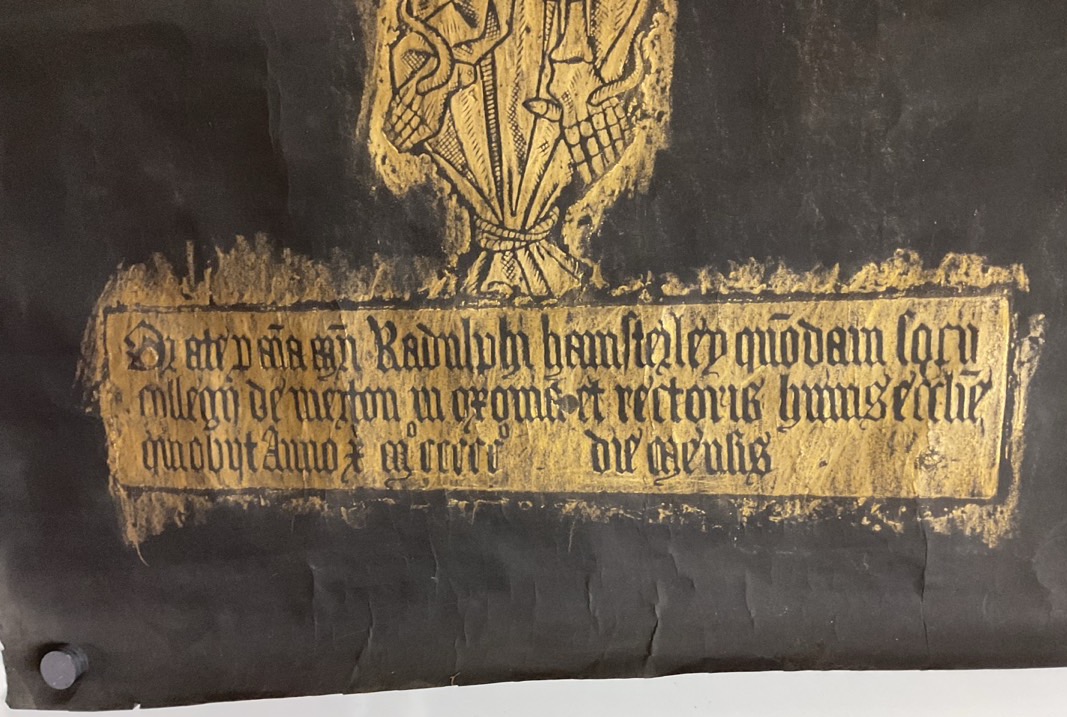 Orate p aīa mgrī Radulphi hamsterley quōdam socij
collegij de merton in oxoniā et rectoris huius ecclīe
qui obijt Anno x mº cccccº die mensis